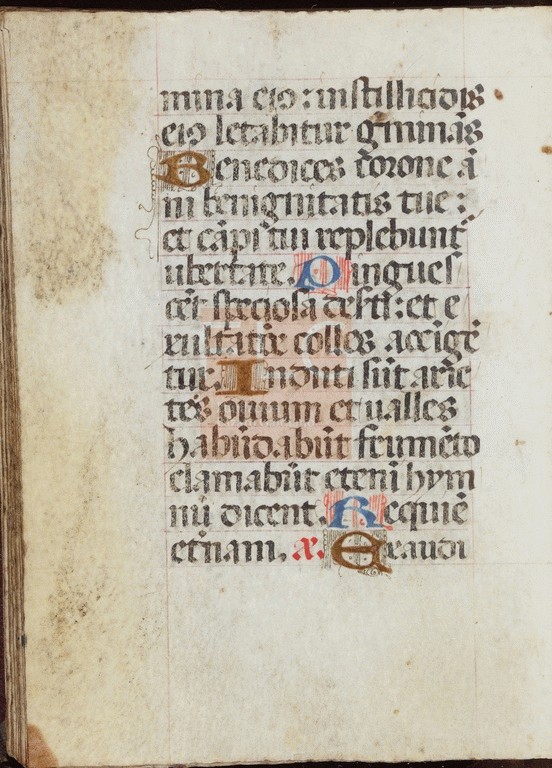 mina eiꝰ : in stillicidiis
eiꝰ letabitur gminãs
Benedices corone ã
ni benignitatis tue :
et cãpi tui replebunt
ubertate. Pingues
cẽt speciosa deserti : et e
xultatiõe colles accigẽ
tur. Induti sũt arie
tes ovium et ualles
habũdabũt frumẽto
clamabũt etenĩ hym
nũ dicent. Requiẽ
etñam. aꝰ. Exaudi